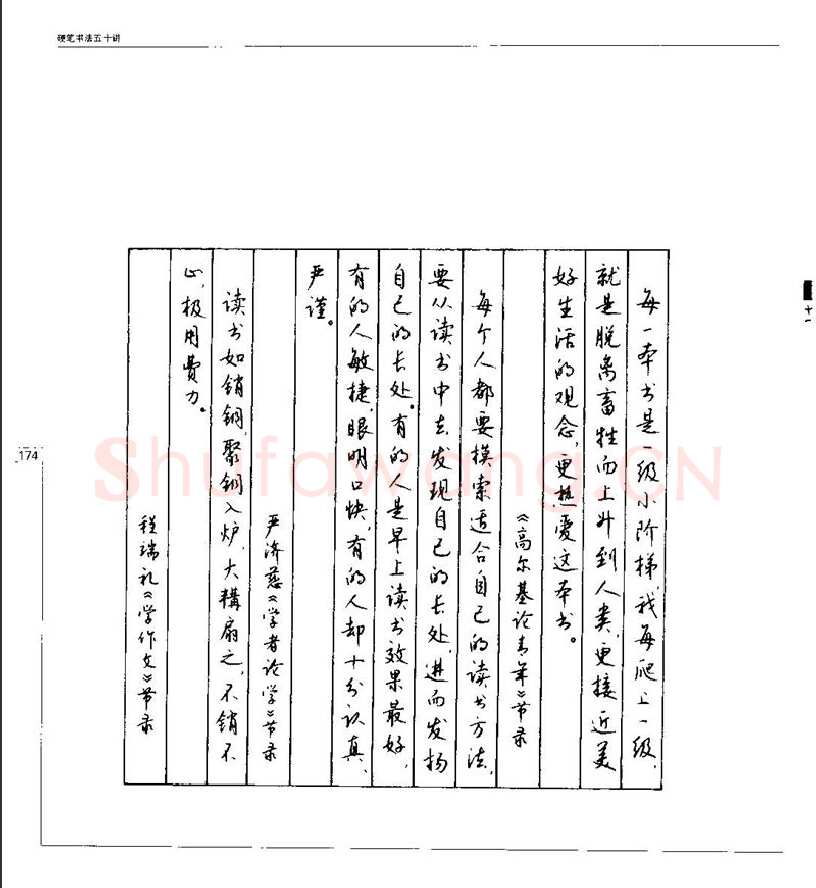 硬笔书法五十讲
每一本书是一级小阶梯，我每爬上一级，
就是脱离畜牲而上升到人类，更接近美
好生活的观念，更热爱这本书。
《高尔基论青年》节录
每个人都要摸索适合自己的读书方法，
要从读书中去发现自己的长处，进而发扬
自己的长处。有的人是早上读书效果最好，
有的人敏捷，眼明口快，有的人却十分认真、
严谨。
严济慈《学者论学》节录
读书如销铜，聚铜入炉，大鞲扇之，不销不
止，极用费力。
程端礼《学作文》节录
174
十一
Shufawang.CN